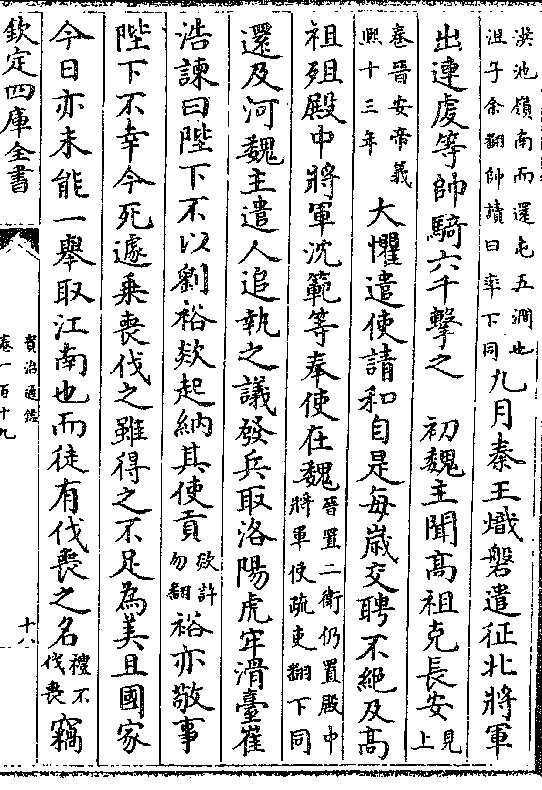 洪池嶺南而還屯五澗也
沮子余翻帥讀曰率下同
九月秦王熾磐遣征北將軍
出連虔等帥騎六千擊之　初魏主聞高祖克長安
見上
卷晉安帝義
熙十三年
大懼遣使請和自是每歲交聘不絕及高
祖殂殿中將軍沈範等奉使在魏
晉置二衛仍置殿中
將軍使疏吏翻下同
還及河魏主遣人追執之議發兵取洛陽虎牢滑臺崔
浩諫曰陛下不以劉裕欻起納其使貢
欻許
勿翻
裕亦敬事
陛下不幸今死遽乗喪伐之雖得之不足為美且國家
今日亦未能一舉取江南也而徒有伐喪之名
禮不
伐喪
竊
欽定四庫全書
資治通鑑
卷一百十九
十八